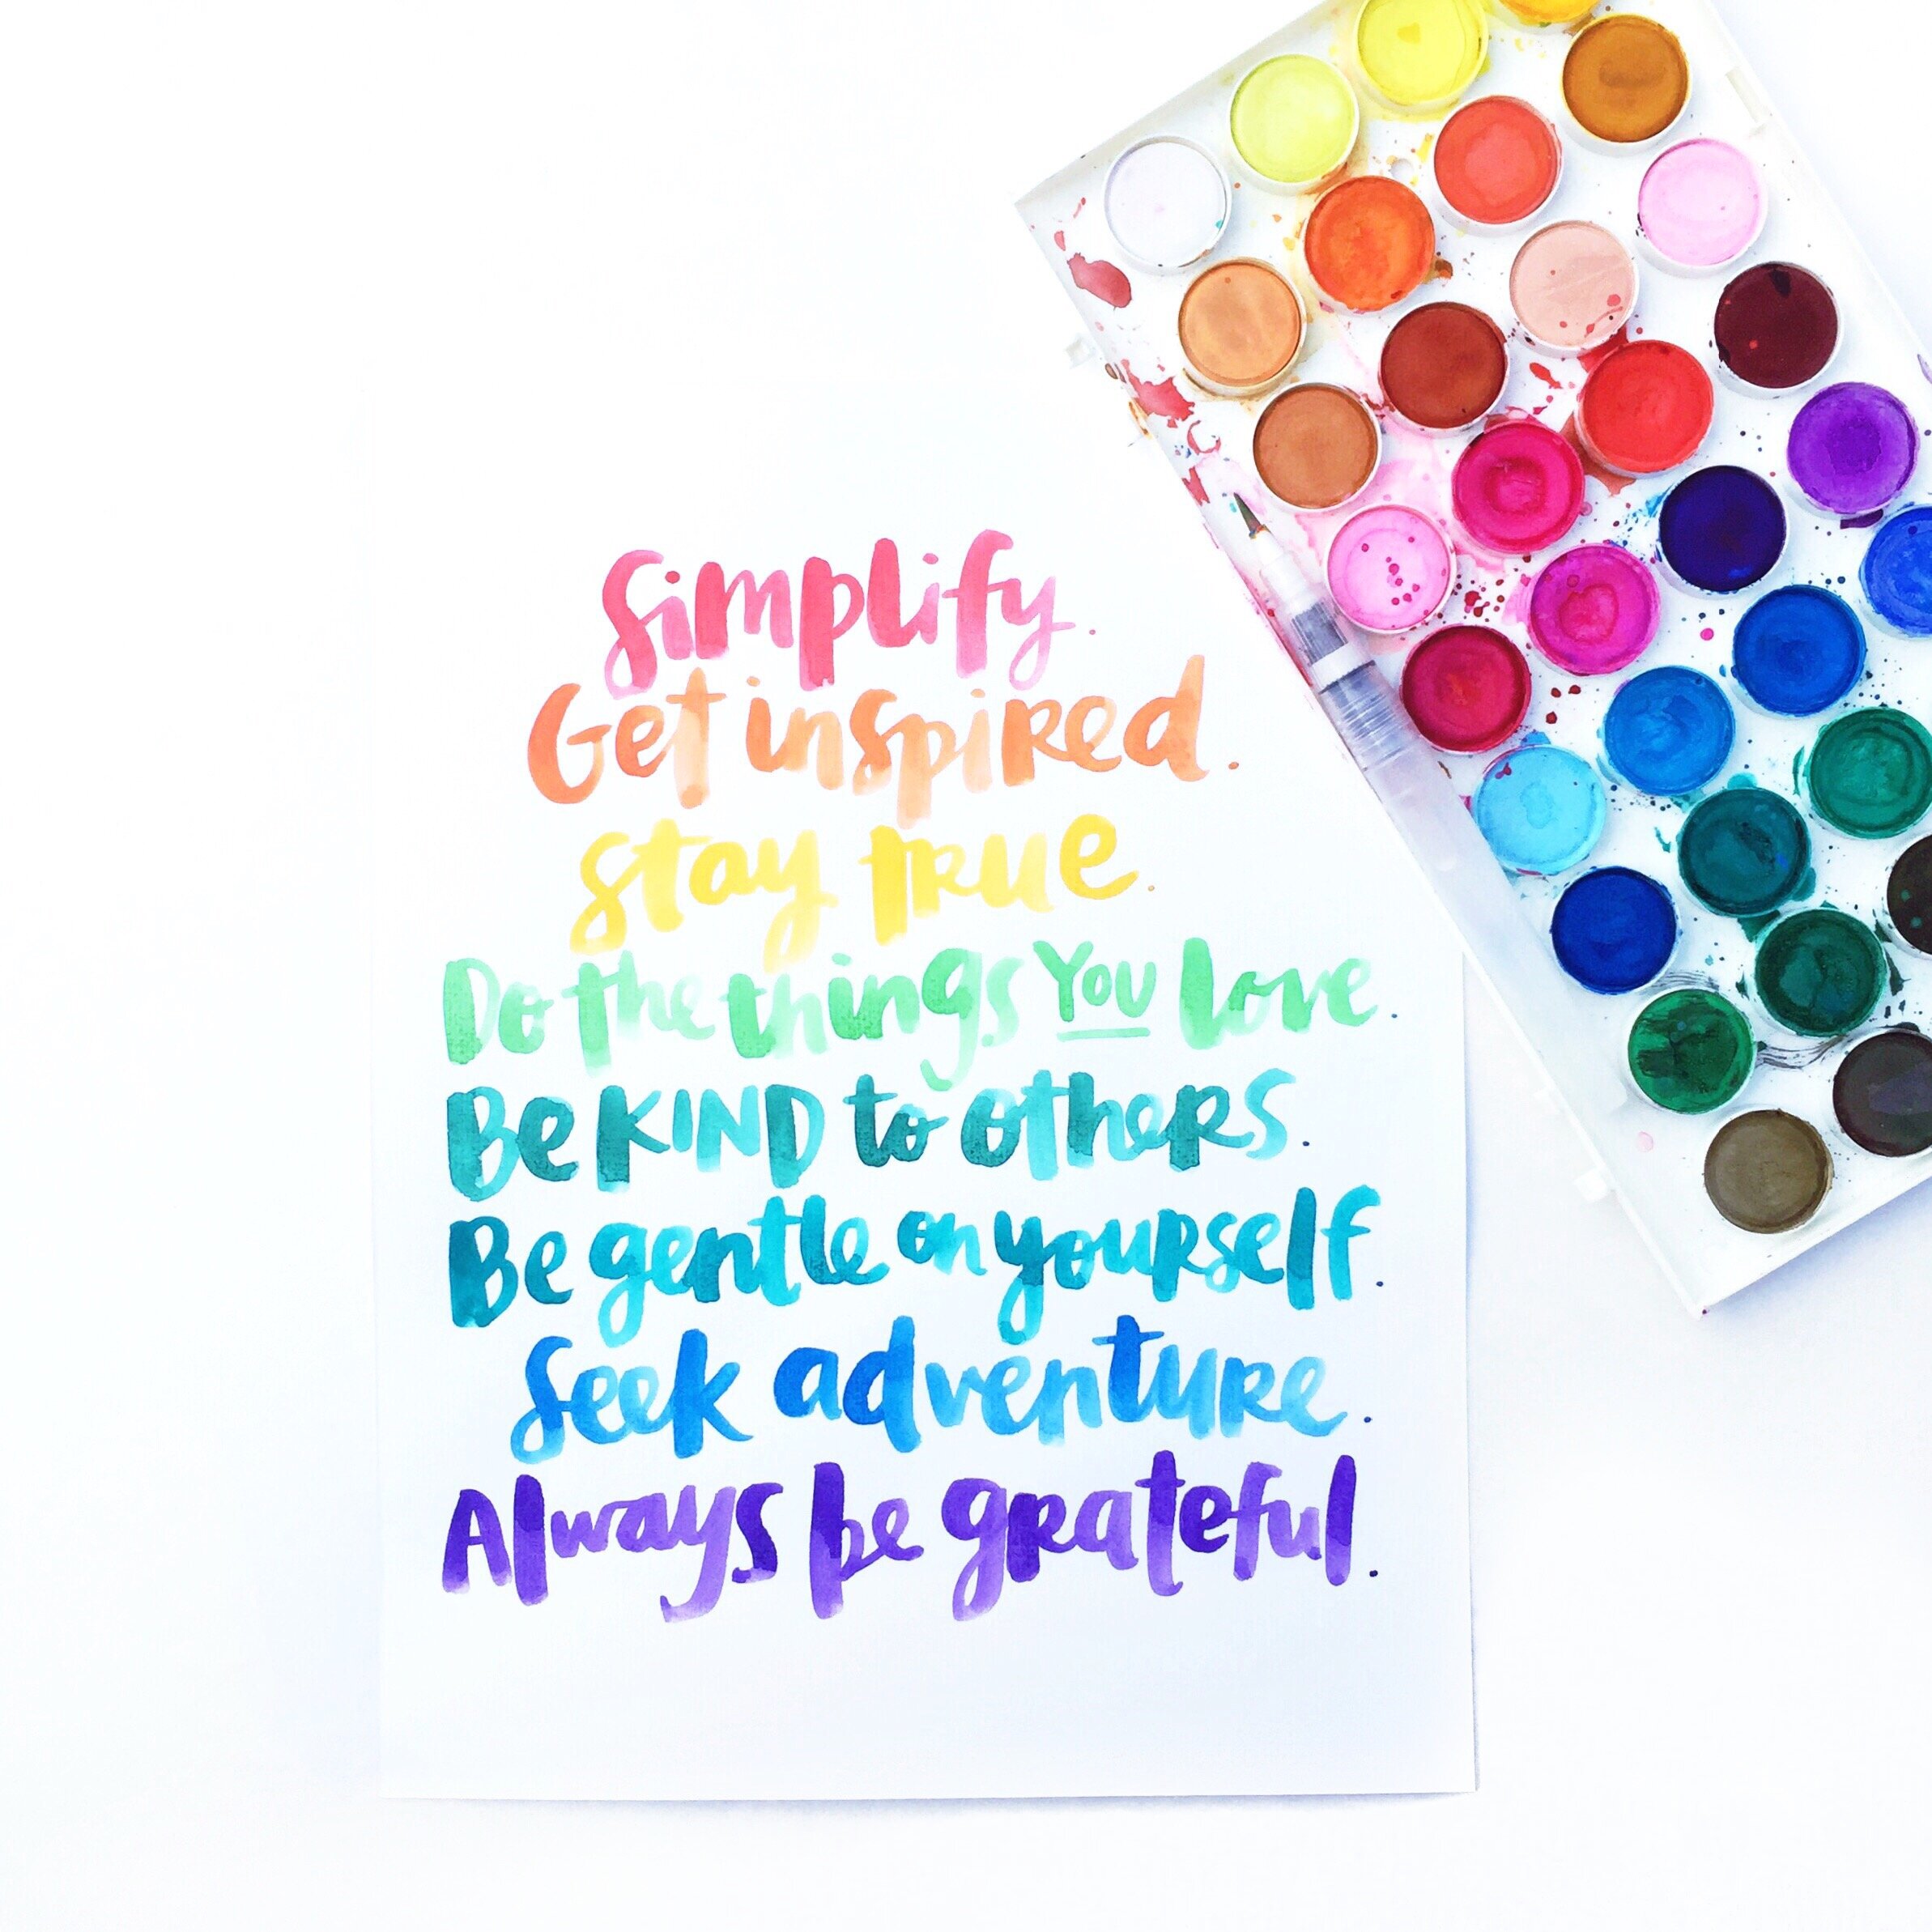 Simplify.
Get inspired.
Stay true.
Do the things You love.
Be KIND to others.
Be gentle on yourself.
Seek adventure.
Always be grateful.